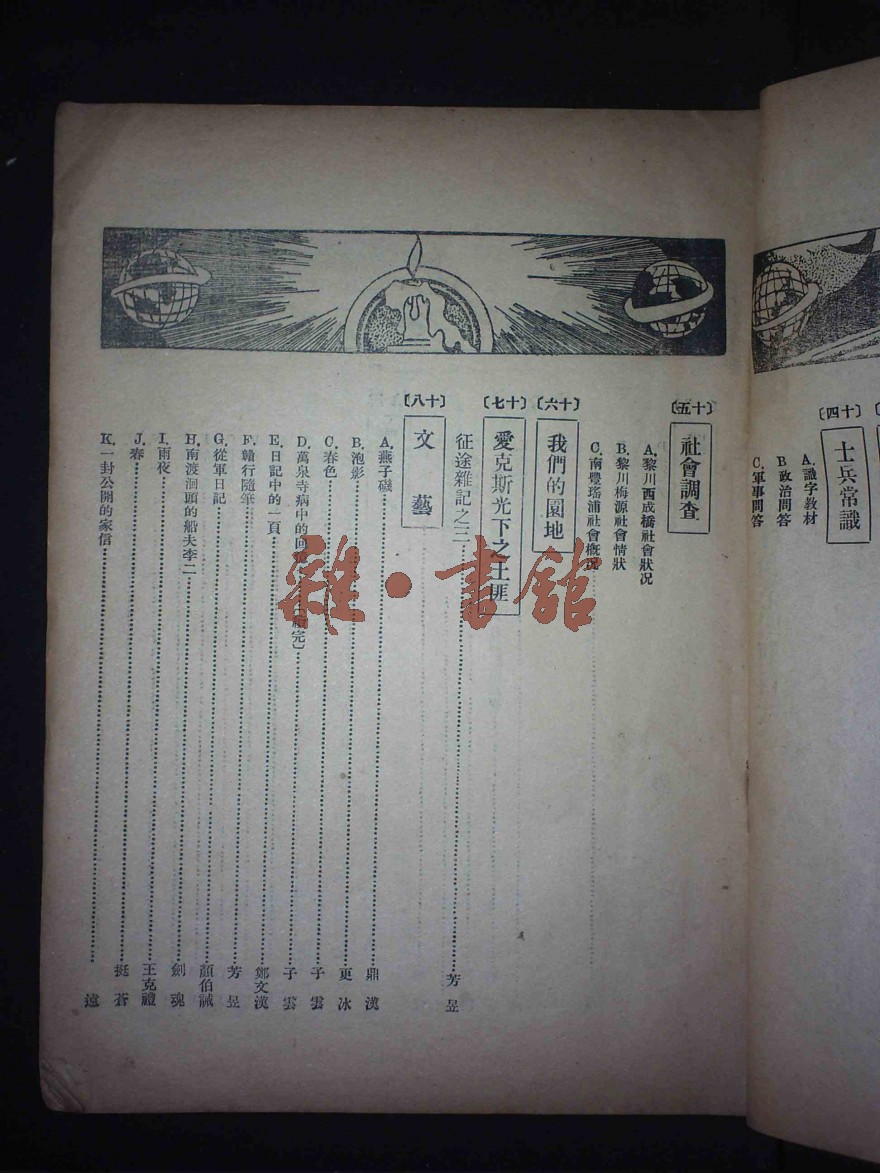 〔十四〕
士兵常識
A.識字教材
B.政治問答
C.軍事問答
〔十五〕
社會調查
A.黎川西成橋社會狀况
B.黎川梅源社會情狀
C.南豐瑤浦社會概况
〔十六〕
我們的園地
〔十七〕
愛克斯光下之土匪
征途雜記之三 芳昱
〔十八〕
文藝
A.燕子磯 鼎漢
B.泡影 更冰
C.春色 子雲
D.萬泉寺病中的回 續完〕 子雲
E.日記中的一頁 鄭文漢
F.贛行隨筆 芳昱
G.從軍日記 顏伯誠
H.南渡洄頭的船夫李二 劍魂
I.雨夜 王克禮
J.春 挺蒼
K.一封公開的家信 遠
雜·書館